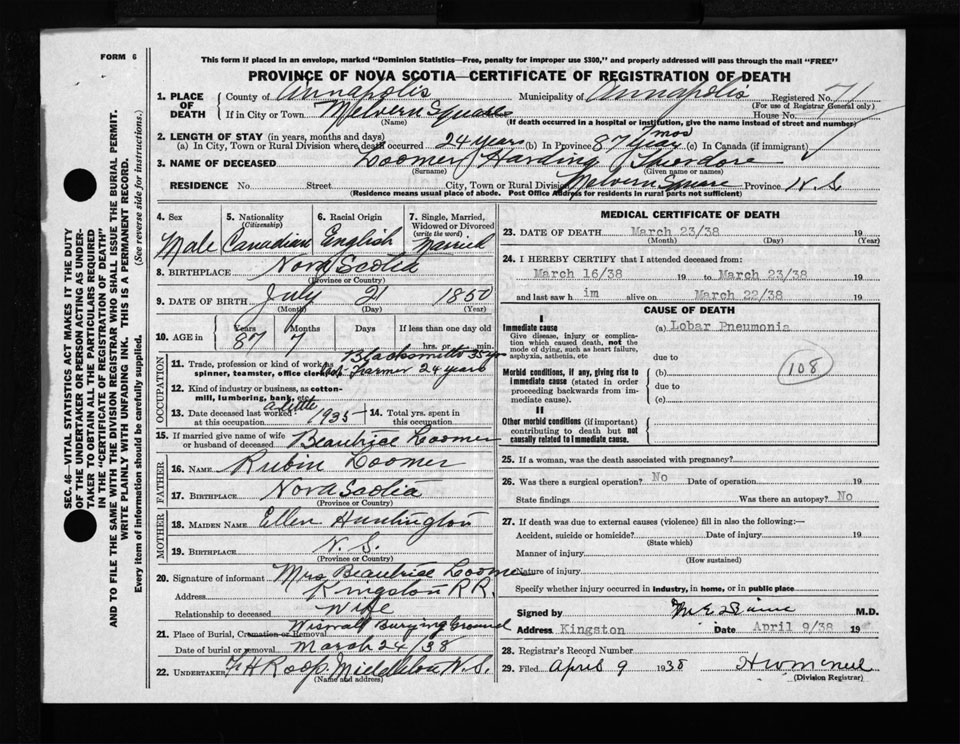 FORM 6
This form if placed in an envelope, marked "Dominion Statistics—Free, penalty for improper use $300," and properly addressed will pass through the mail "FREE"
PROVINCE OF NOVA SCOTIA—CERTIFICATE OF REGISTRATION OF DEATH
1. PLACE OF DEATH
County of Annapolis Municipality of Annapolis Registered No. 71
(For use of Registrar General only)
If in City or Town Melvern Square House No.
(If death occurred in a hospital or institution, give the name instead of street and number)
2. LENGTH OF STAY (in years, months and days)
(a) In City, Town or Rural Division where death occurred 24 years (b) In Province 87 years 7 mos (c) In Canada (if immigrant)
3. NAME OF DECEASED Loomer Harding Theodore
(Surname) (Given name or names)
RESIDENCE No. Street City, Town or Rural Division Melvern Square Province N.S.
(Residence means usual place of abode. Post Office Address for residents in rural parts not sufficient)
4. Sex Male
5. Nationality (Citizenship) Canadian
6. Racial Origin English
7. Single, Married, Widowed or Divorced (write the word) Married
8. BIRTHPLACE Nova Scotia
(Province or Country)
9. DATE OF BIRTH July 21 1850
(Month) (Day) (Year)
10. AGE in Years 87 Months 7 Days If less than one day old hrs. or min.
OCCUPATION
11. Trade, profession or kind of work as spinner, teamster, office clerk, etc. Blacksmith 35 yrs
Farmer 24 years
12. Kind of industry or business, as cotton-mill, lumbering, bank, etc.
13. Date deceased last worked at this occupation a little 1935
14. Total yrs. spent in this occupation
15. If married give name of wife or husband of deceased Beautrice Loomer
FATHER
16. NAME Rubin Loomer
17. BIRTHPLACE Nova Scotia
(Province or Country)
MOTHER
18. MAIDEN NAME Ellen Huntington
19. BIRTHPLACE N.S.
(Province or Country)
20. Signature of informant Mrs Beautrice Loomer
Address Kingston R.R.
Relationship to deceased Wife
21. Place of Burial, Cremation or Removal Wiswal Burying Ground
Date of burial or removal March 24/38
22. UNDERTAKER F H Roop, Middleton N.S.
(Name and address)
MEDICAL CERTIFICATE OF DEATH
23. DATE OF DEATH March 23/38 19
(Month) (Day) (Year)
24. I HEREBY CERTIFY that I attended deceased from:
March 16/38 19 to March 23/38 19
and last saw h im alive on March 22/38 19
CAUSE OF DEATH
I
Immediate cause (a) Lobar Pneumonia
Give disease, injury or complication which caused death, not the mode of dying, such as heart failure, asphyxia, asthenia, etc
due to
108
Morbid conditions, if any, giving rise to immediate cause (stated in order proceeding backwards from immediate cause). (b)
due to
(c)
II
Other morbid conditions (if important) contributing to death but not causally related to immediate cause.
25. If a woman, was the death associated with pregnancy?
26. Was there a surgical operation? No Date of operation 19
State findings Was there an autopsy? No
27. If death was due to external causes (violence) fill in also the following:—
Accident, suicide or homicide? Date of injury 19
(State which)
Manner of injury
(How sustained)
Nature of injury
Specify whether injury occurred in industry, in home, or in public place
Signed by M.D.
Address Kingston Date April 9/38 19
28. Registrar's Record Number
29. Filed April 9 1938
(Division Registrar)
SEC. 46—VITAL STATISTICS ACT MAKES IT THE DUTY
OF THE UNDERTAKER OR PERSON ACTING AS UNDER-
TAKER TO OBTAIN ALL THE PARTICULARS REQUIRED
IN THE "CERTIFICATE OF REGISTRATION OF DEATH"
AND TO FILE THE SAME WITH THE DIVISION REGISTRAR WHO SHALL ISSUE THE BURIAL PERMIT.
WRITE PLAINLY WITH UNFADING INK. THIS IS A PERMANENT RECORD.
Every item of information should be carefully supplied. (See reverse side for instructions.)